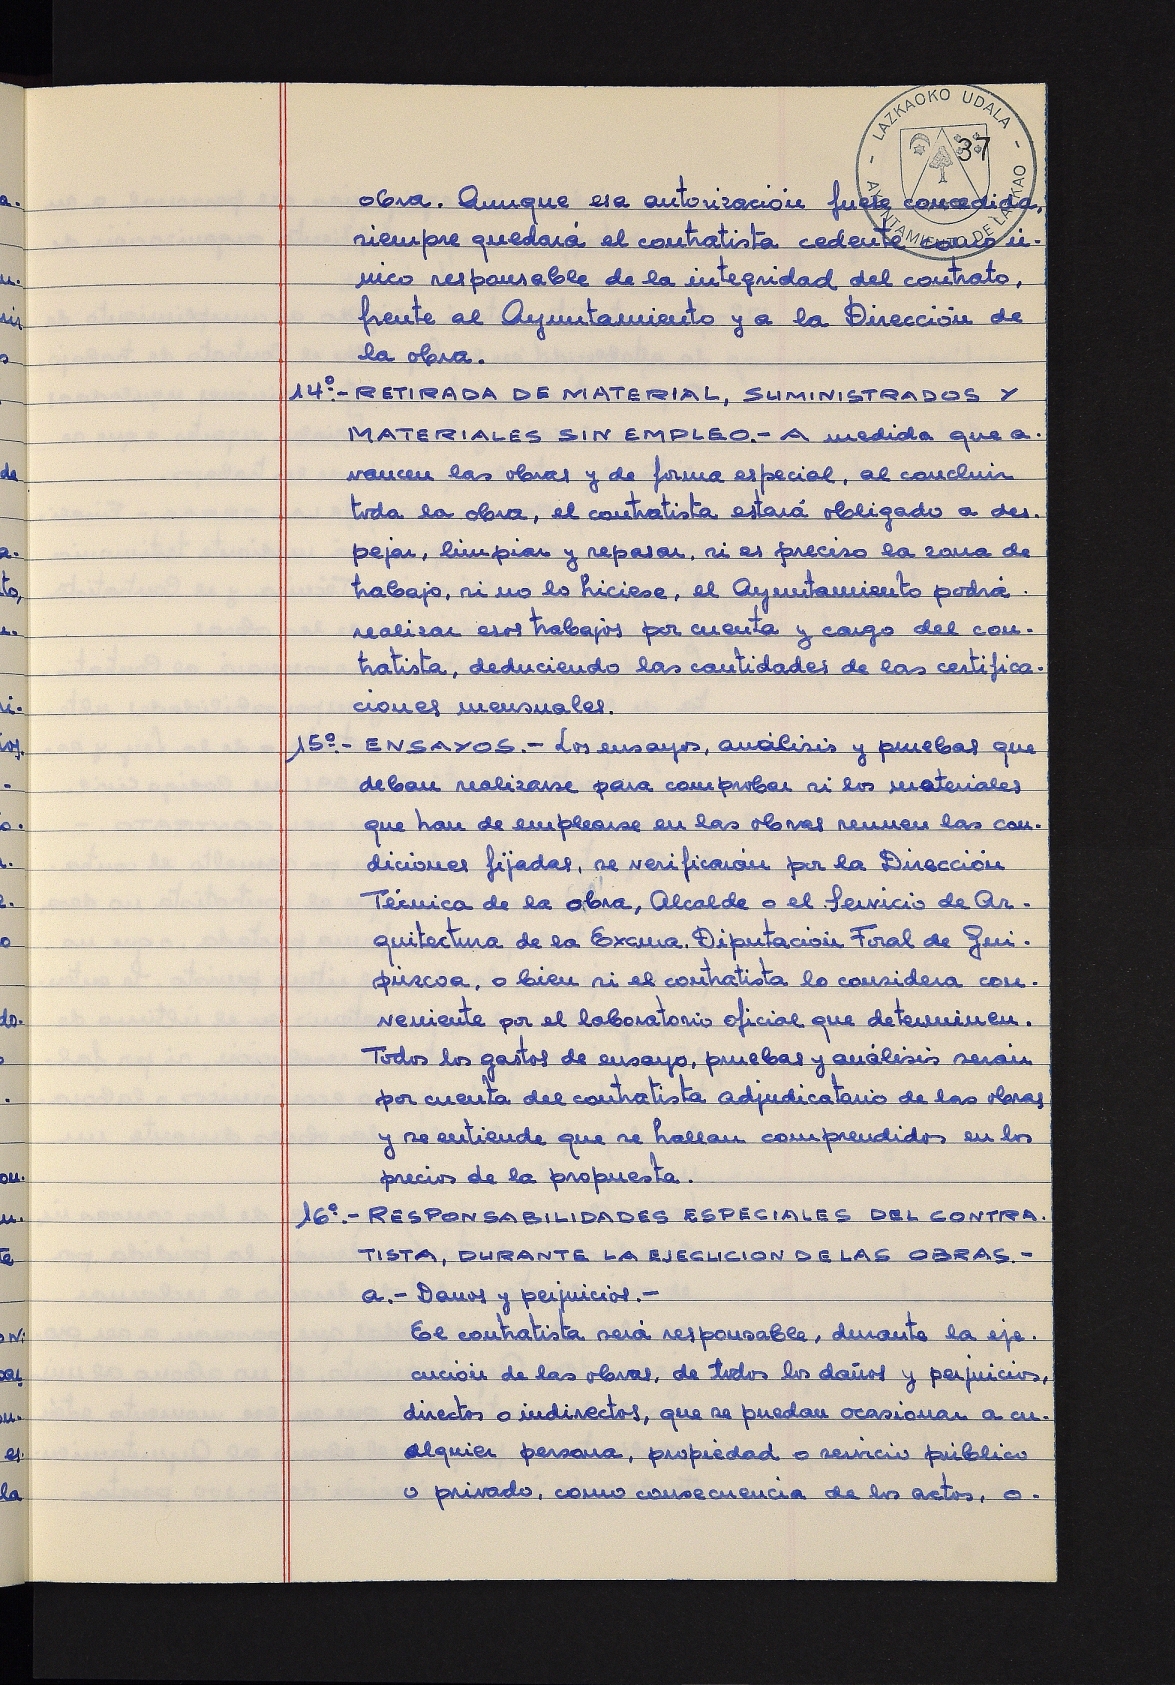 - LAZKAOKO UDALA -
AYUNTAMIENTO DE LAZKAO
37
obra. Aunque esa autorización fuese concedida,
siempre quedará el contratista cedente como ú-
nico responsable de la integridad del contrato,
frente al Ayuntamiento y a la Dirección de
la obra.
14º.- RETIRADA DE MATERIAL, SUMINISTRADOS Y
MATERIALES SIN EMPLEO.- A medida que a-
vancen las obras y de forma especial, al concluir
toda la obra, el contratista estará obligado a des-
pejar, limpiar y repasar, si es preciso la zona de
trabajo, si no lo hiciese, el Ayuntamiento podrá
realizar esos trabajos por cuenta y cargo del con-
tratista, deduciendo las cantidades de las certifica-
ciones mensuales.
15º.- ENSAYOS.- Los ensayos, análisis y pruebas que
deban realizarse para comprobar si los materiales
que han de emplearse en las obras reunen las con-
diciones fijadas, se verificarán por la Dirección
Técnica de la obra, Alcalde o el Servicio de Ar-
quitectura de la Excma. Diputación Foral de Gui-
púzcoa, o bien si el contratista lo considera con-
veniente por el laboratorio oficial que determinen.
Todos los gastos de ensayo, pruebas y análisis serán
por cuenta del contratista adjudicatario de las obras
y se entiende que se hallan comprendidos en los
precios de la propuesta.
16º.- RESPONSABILIDADES ESPECIALES DEL CONTRA-
TISTA, DURANTE LA EJECUCION DE LAS OBRAS.-
a.- Danos y perjuicios.-
El contratista será responsable, durante la eje-
cución de las obras, de todos los daños y perjuicios,
directos o indirectos, que se puedan ocasionar a cu-
alquier persona, propiedad o servicio público
o privado, como consecuencia de los actos, o-